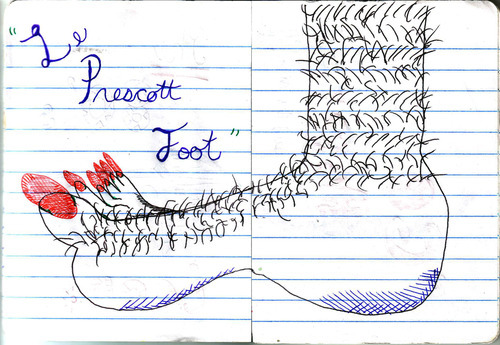 "Le
Prescott
Foot"